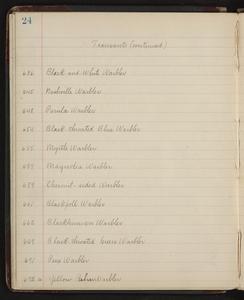 24
Transients (continued)
636 Black and White Warbler
645 Nashville Warbler
648 Parula Warbler
654 Black-throated Blue Warbler
655 Myrtle Warbler
657 Magnolia Warbler
659 Chestnut-sided Warbler
661 Blackpoll Warbler
662 Blackburnian Warbler
667 Black-throated Green Warbler
671 Pine Warbler
672 a Yellow Palm Warbler